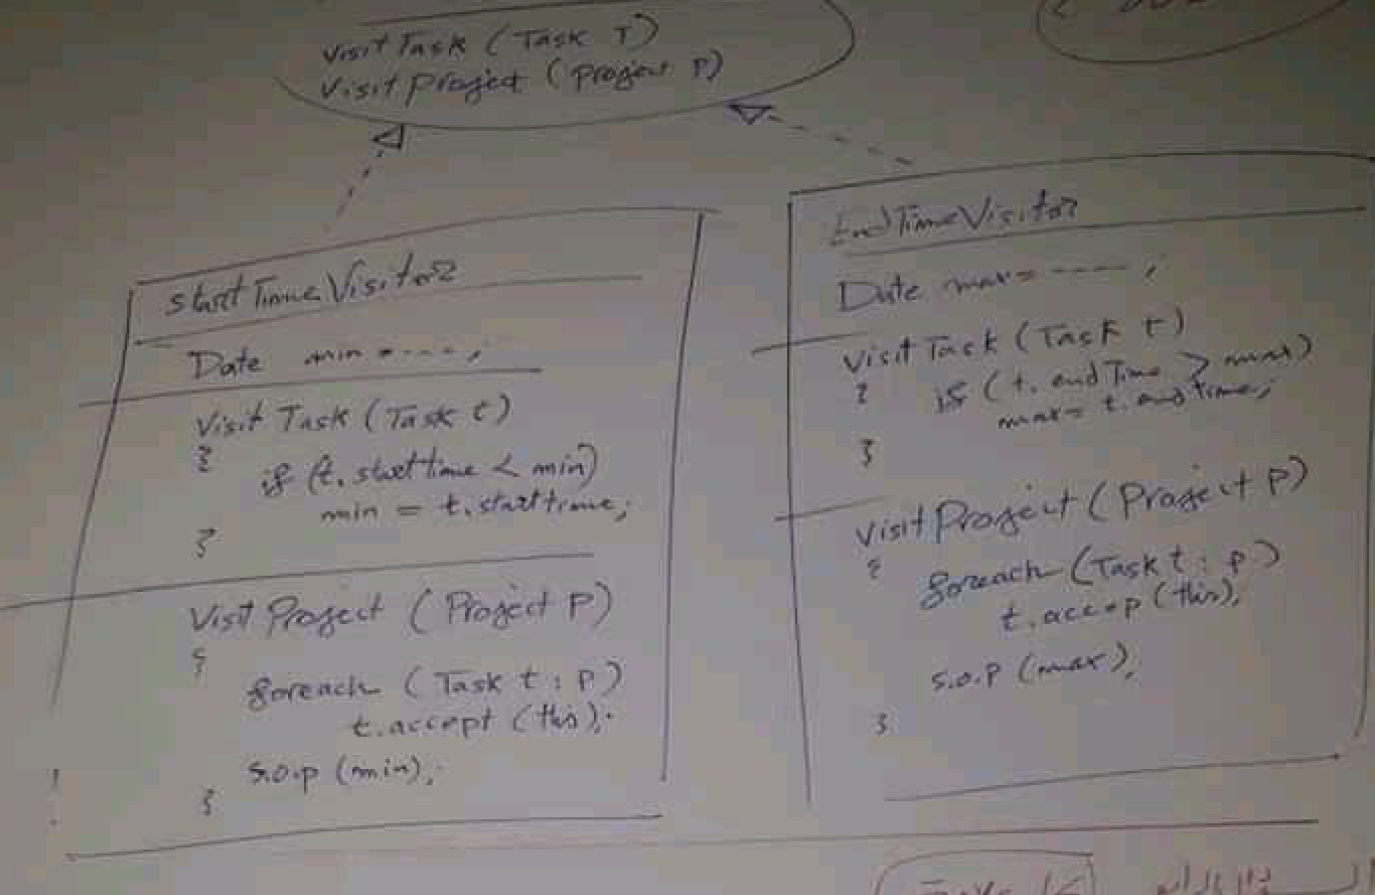 visit Task (Task T)
visit project (project P)
StartTimeVisitor
Date min = ---- ;
Visit Task (Task t)
{
if (t.starttime < min)
min = t.starttime;
}
Visit Project (Project P)
{
foreach (Task t : P)
t.accept (this);
S.o.p (min);
}
EndTimeVisitor
Date max= ---- ;
visit Task (Task t)
{ if (t. endTime > max)
max= t. endtime;
}
visit Project (Project P)
{
foreach (Task t : P)
t.accep (this);
S.o.p (max);
}